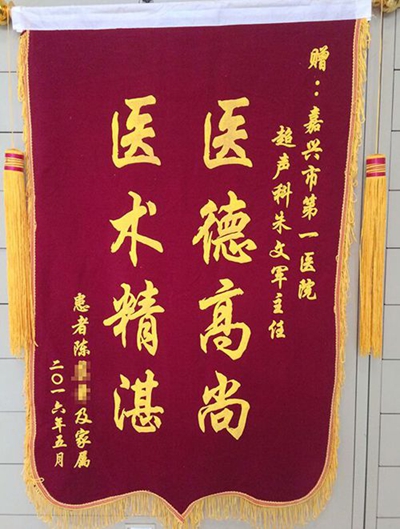 赠：嘉兴市第一医院
超声科朱文军主任
医德高尚
医术精湛
患者陈及家属
二〇一六年五月